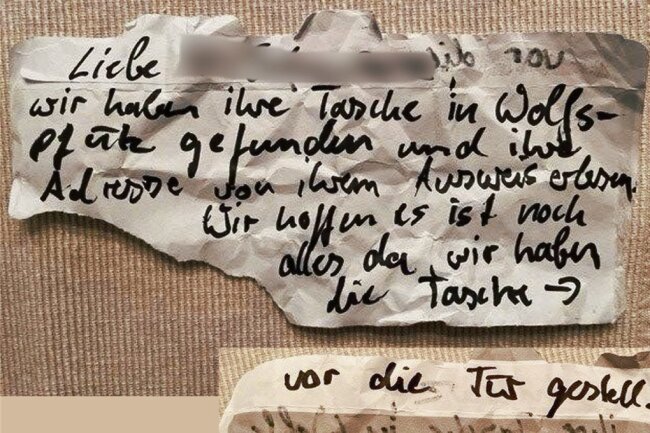 Liebe
wir haben ihre Tasche in Wolfs-
pfütz gefunden und ihre
Adresse von ihrem Ausweis erlesen.
Wir hoffen es ist noch
alles da, wir haben
die Tasche →
vor die Tür gestell.